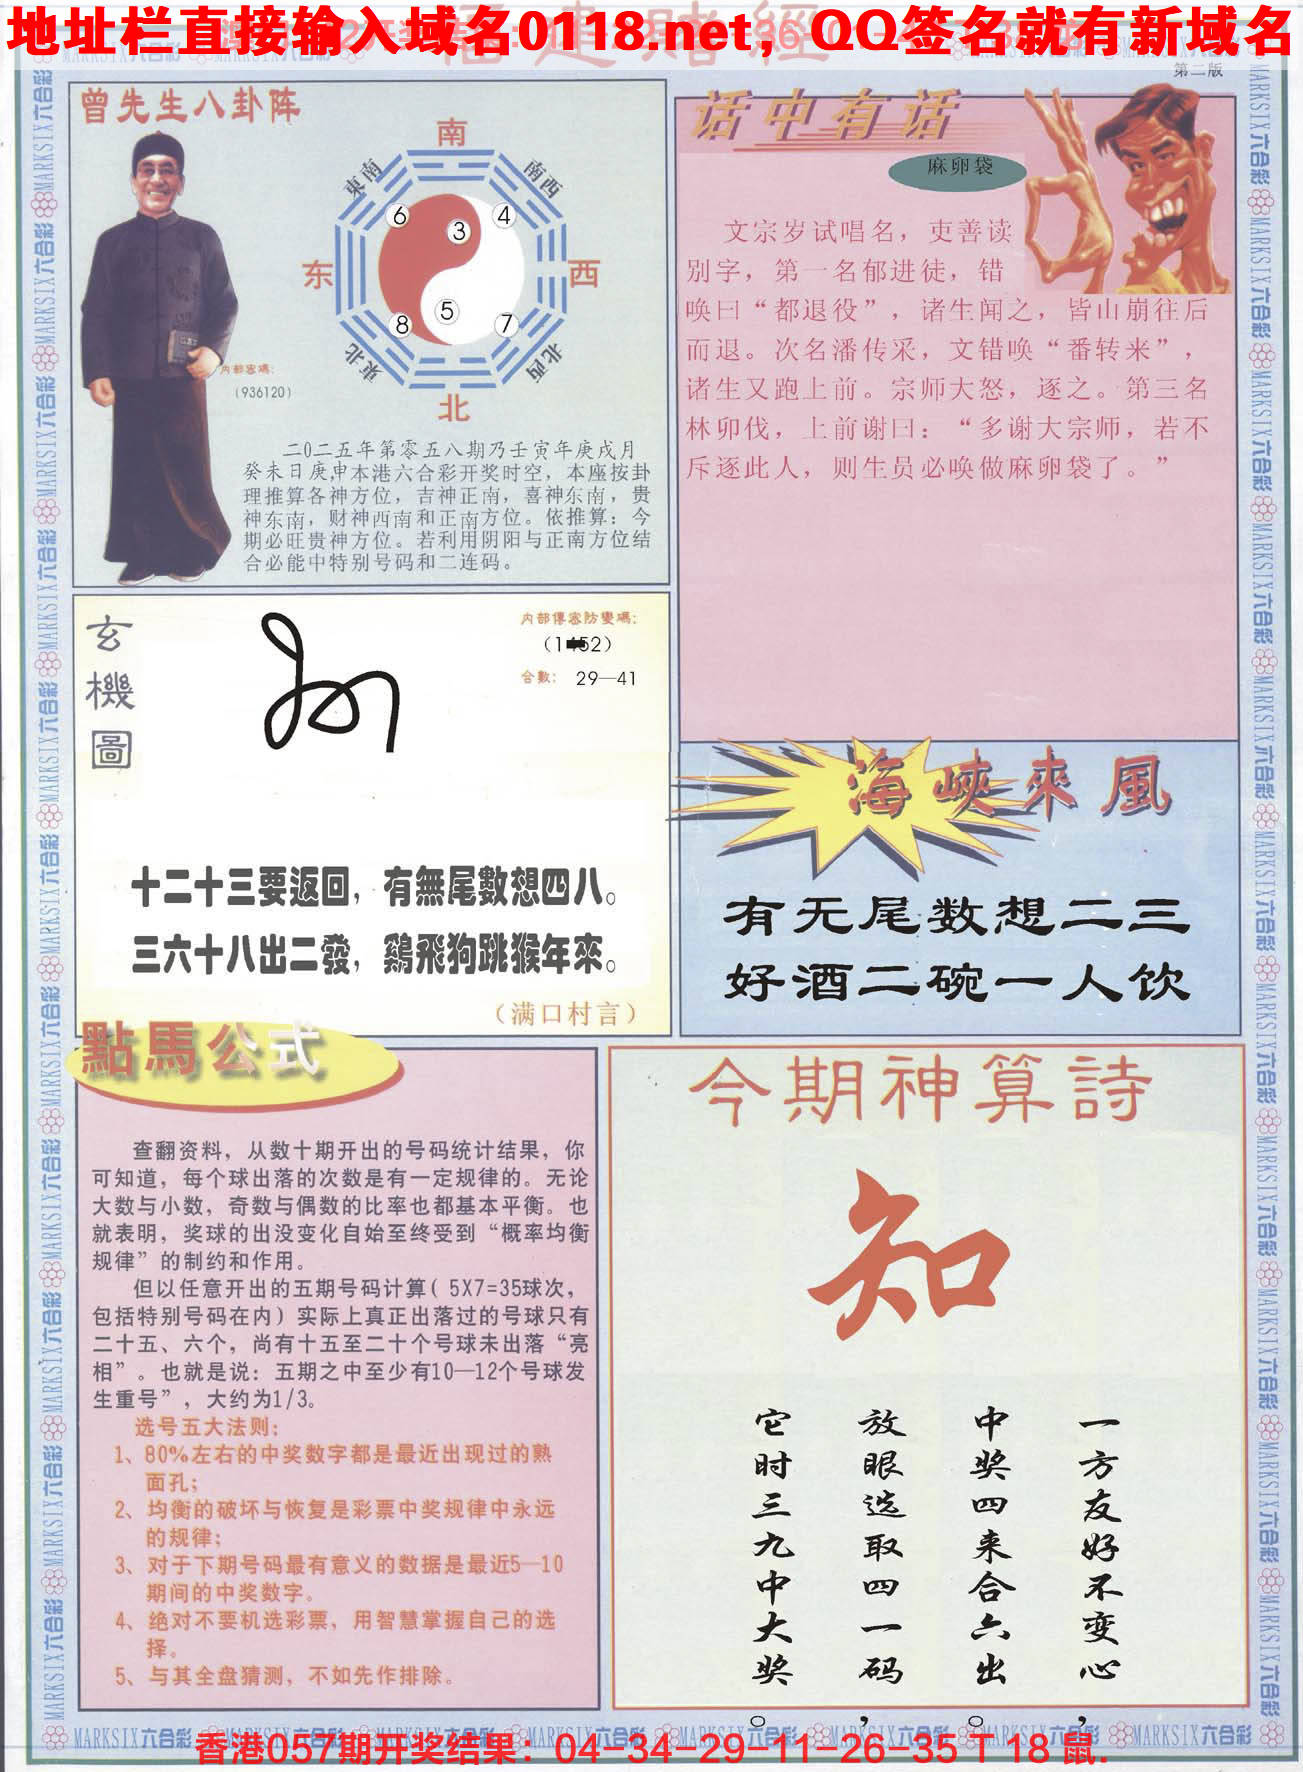 地址栏直接输入域名0118.net，QQ签名就有新域名
第二版
曾先生八卦阵
南
東南
南西
6
3
4
东
西
5
8
7
東北
北西
北
内部密碼：
（936120）
二0二五年第零五八期乃壬寅年庚戌月
癸未日庚申本港六合彩开奖时空，本座按卦
理推算各神方位，吉神正南，喜神东南，贵
神东南，财神西南和正南方位。依推算：今
期必旺贵神方位。若利用阴阳与正南方位结
合必能中特别号码和二连码。
话中有话
麻卵袋
文宗岁试唱名，吏善读
别字，第一名郁进徒，错
唤曰“都退役”，诸生闻之，皆山崩往后
而退。次名潘传采，文错唤“番转来”，
诸生又跑上前。宗师大怒，逐之。第三名
林卯伐，上前谢曰：“多谢大宗师，若不
斥逐此人，则生员必唤做麻卵袋了。”
玄機圖
内部傳密防變碼：
合數：29—41
十二十三要返回，有無尾數想四八。
三六十八出二發，鷄飛狗跳猴年來。
（满口村言）
海峽來風
有无尾数想二三
好酒二碗一人饮
點馬公式
查翻资料，从数十期开出的号码统计结果，你
可知道，每个球出落的次数是有一定规律的。无论
大数与小数，奇数与偶数的比率也都基本平衡。也
就表明，奖球的出没变化自始至终受到“概率均衡
规律”的制约和作用。
但以任意开出的五期号码计算（5X7=35球次，
包括特别号码在内）实际上真正出落过的号球只有
二十五、六个，尚有十五至二十个号球未出落“亮
相”。也就是说：五期之中至少有10—12个号球发
生重号”，大约为1/3。
选号五大法则：
1、80%左右的中奖数字都是最近出现过的熟
面孔；
2、均衡的破坏与恢复是彩票中奖规律中永远
的规律；
3、对于下期号码最有意义的数据是最近5—10
期间的中奖数字。
4、绝对不要机选彩票，用智慧掌握自己的选
择。
5、与其全盘猜测，不如先作排除。
今期神算詩
知
一方友好不变心，
中奖四来合六出。
放眼选取四一码，
它时三九中大奖。
MARKSIX六合彩
香港057期开奖结果：04-34-29-11-26-35 T 18 鼠.